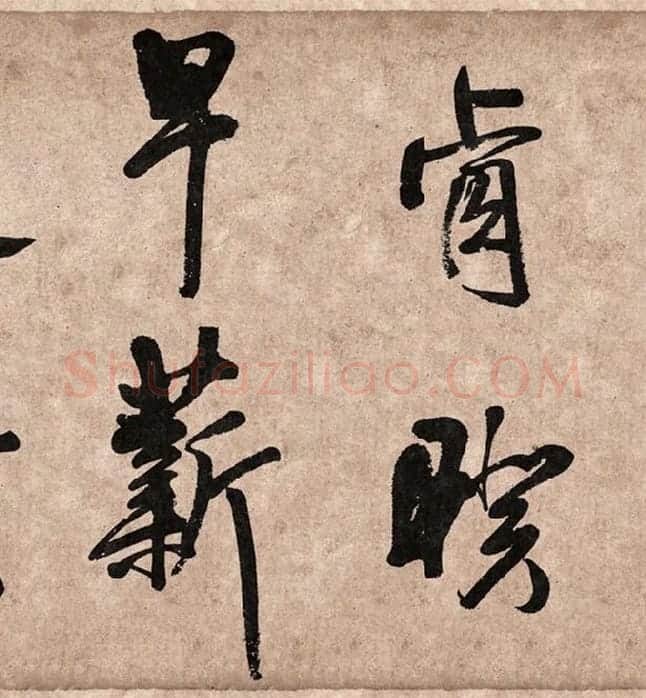 肯暌
早薪
Shufaziliao.COM